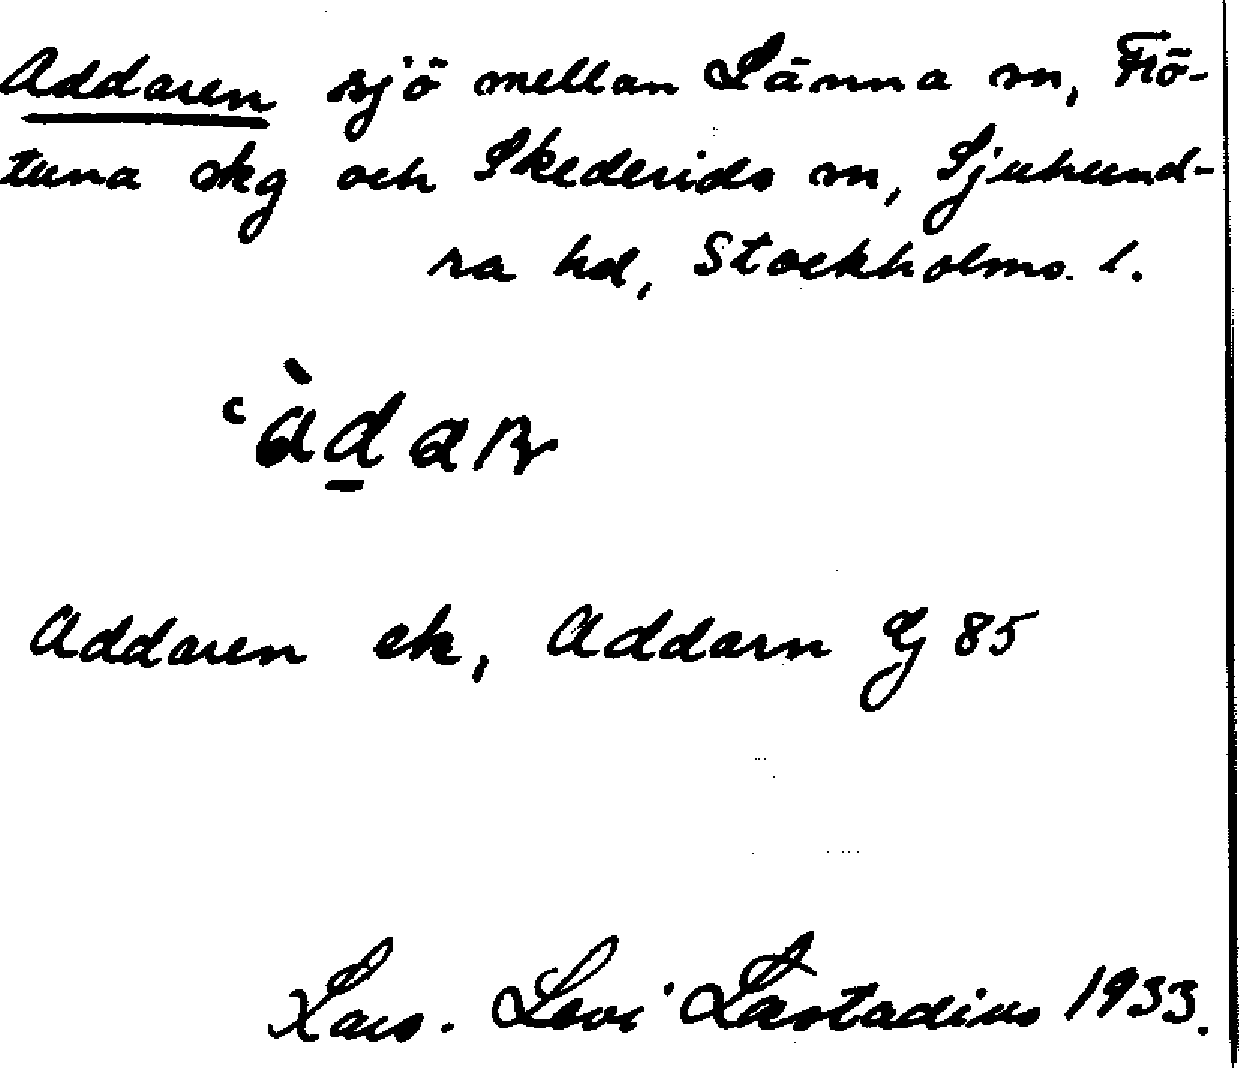 Addaren sjö mellan Länna sn, Frö-
tuna skg och Skederids sn, Sjuhund-
ra hd, Stockholms l.
Addaren ek, Addarn GJ 85
Lars. Levi Læstadius 1933.